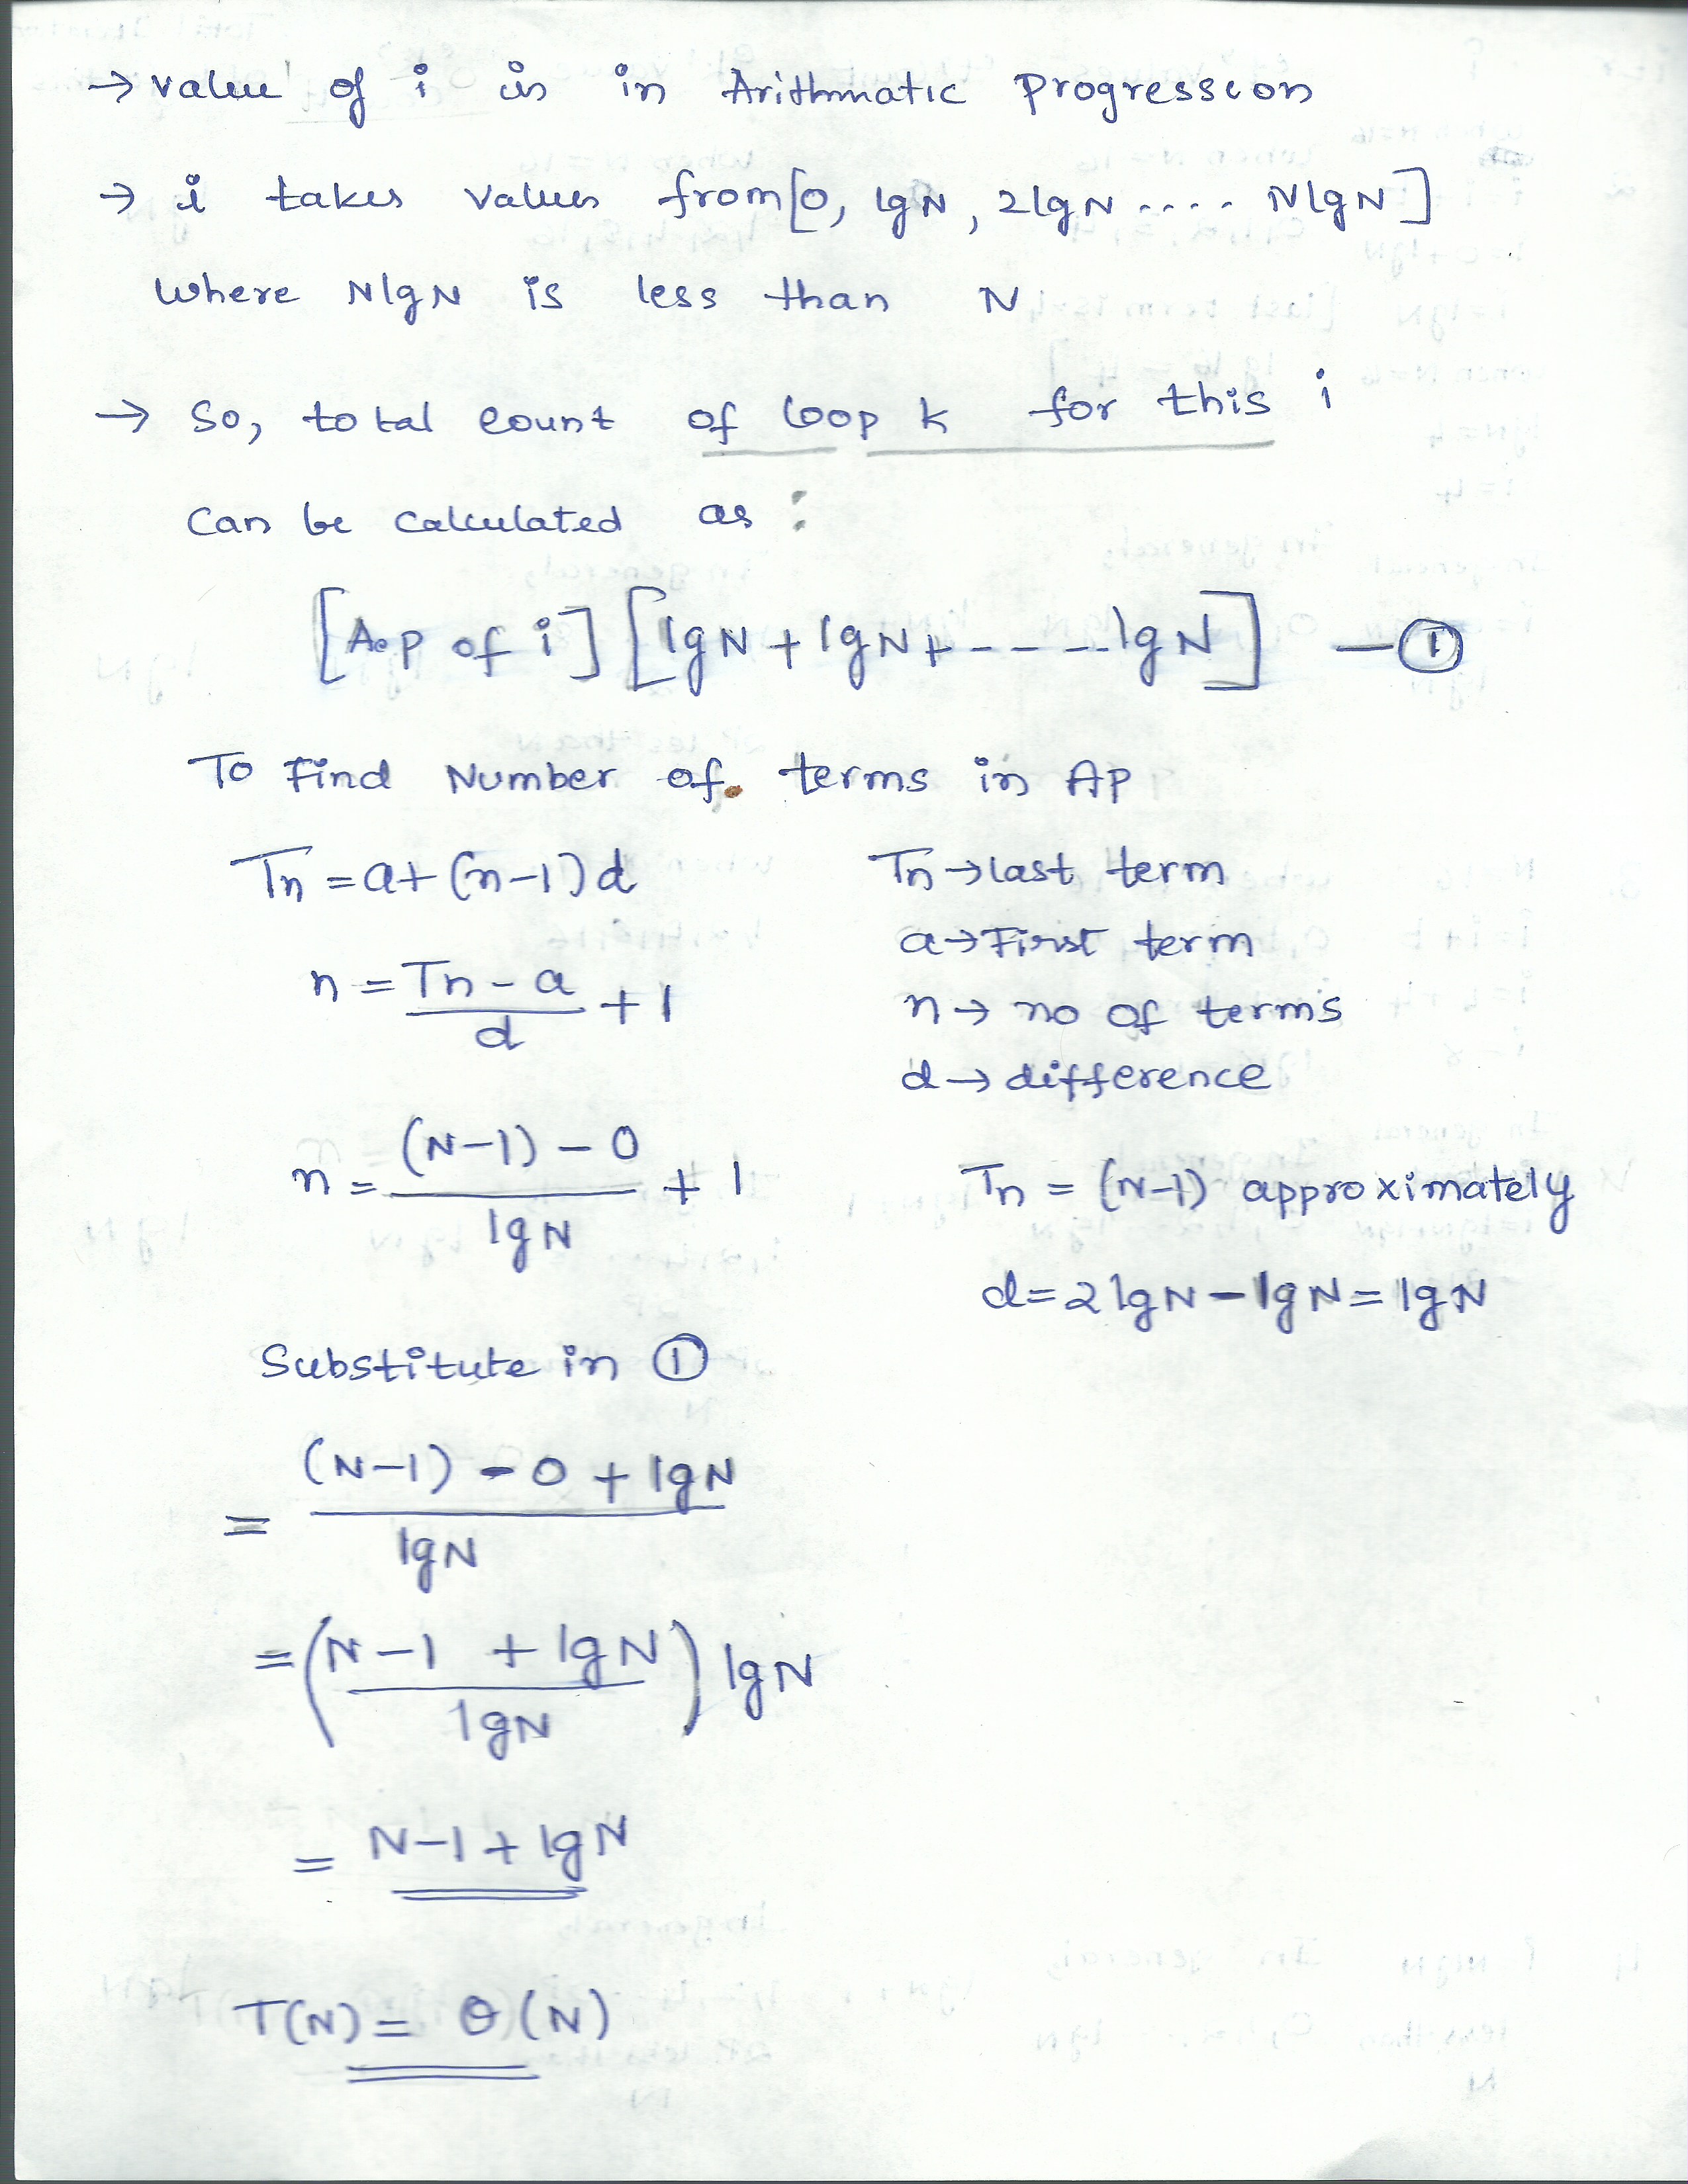 → value of i is in Arithmatic progression
→ i takes values from [0, lgN, 2lgN .... NlgN]
where NlgN is less than N
→ So, total count of loop k for this i
can be calculated as :
[A.P of i] [lgN + lgN + - - - -- lgN] — ①
To Find Number of terms in AP
Tn = a + (n-1) d
Tn → last term
a → First term
n = (Tn - a)/d + 1
n → no of terms
d → difference
n = ((N-1) - 0)/lgN + 1
Tn = (N-1) approximately
d = 2lgN - lgN = lgN
Substitute in ①
= ((N-1) - 0 + lgN)/lgN
= ((N-1 + lgN)/lgN) lgN
= N-1 + lgN
T(N) = θ(N)